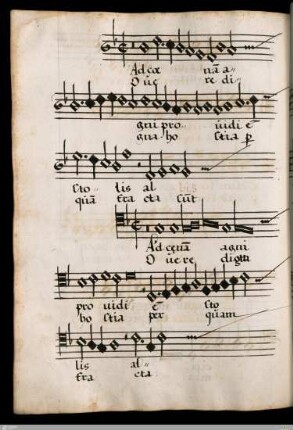 Ad cœ nā a-
O ue re di-
gni pro- uidi
gna ho stia
sto- lis al
quā fra cta sūt
Ad cœnā agni
O uere digna
pro uidi sto
ho stia per quam
lis al-
fra cta